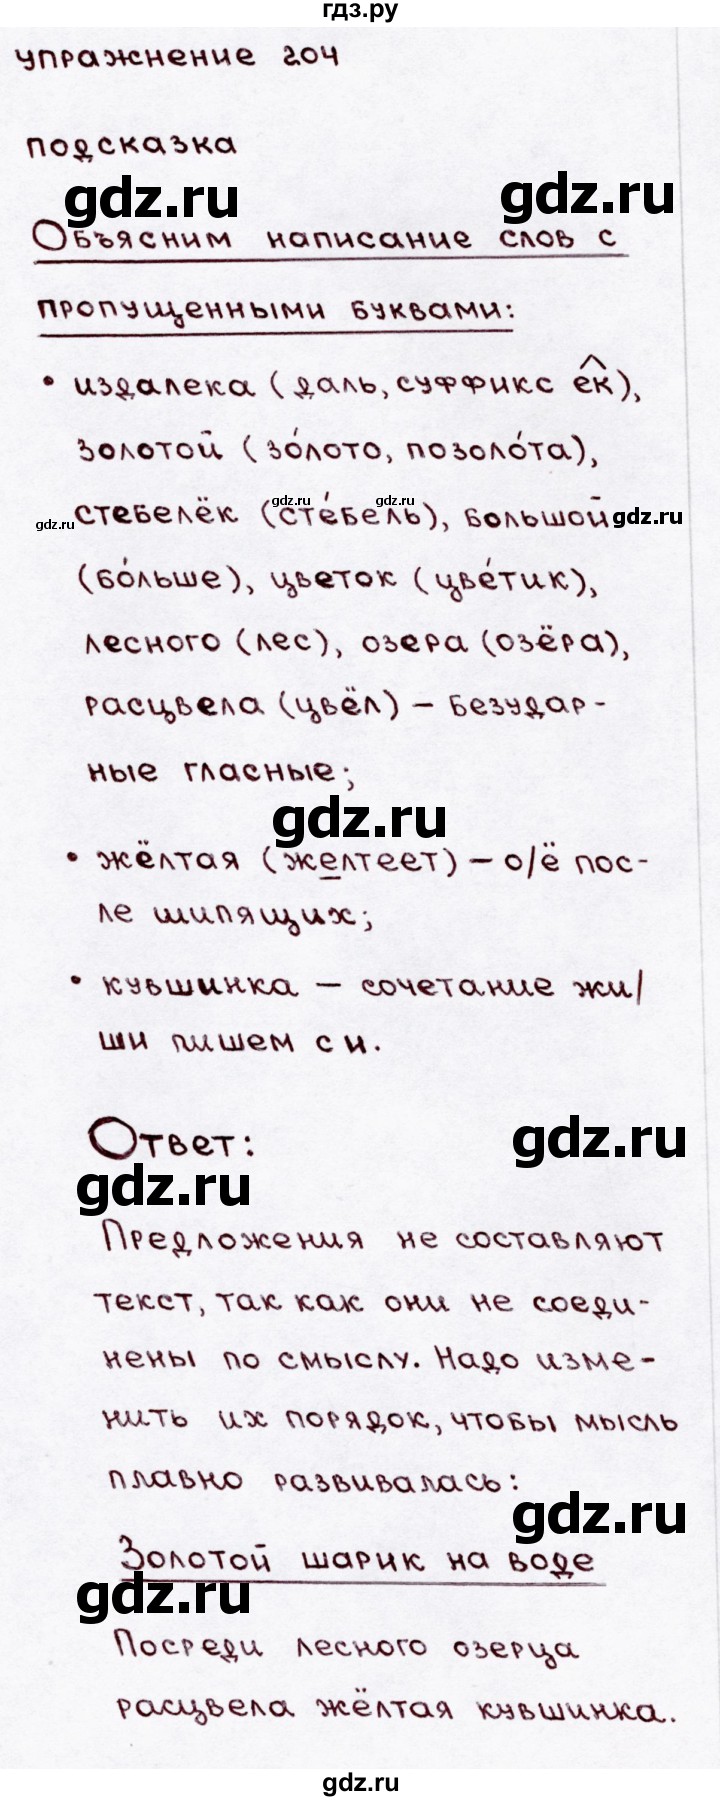 гдз.ру
упражнение 204
подсказка
gdz.ru gdz.ru
Объясним написание слов с
пропущенными буквами:
• издалека (даль, суффикс ек),
золотой (зо́лото, позоло́та),
gdz.ru gdz.ru
стебелёк (сте́бель), большой
gdz.ru gdz.ru
(бо́льше), цветок (цве́тик),
лесного (лес), озера (озёра),
расцвела (цвёл) – безудар-
ные гласные;
gdz.ru
• жёлтая (желтеет) – о/ё пос-
ле шипящих;
• кувшинка – сочетание жи/
ши пишем с и.
Ответ:
gdz.ru
gdz.ru
Предложения не составляют
текст, так как они не соеди-
нены по смыслу. Надо изме-
нить их порядок, чтобы мысль
плавно развивалась:
gdz.ru
Золотой шарик на воде
gdz.ru
Посреди лесного озерца
расцвела жёлтая кувшинка.
gdz.ru